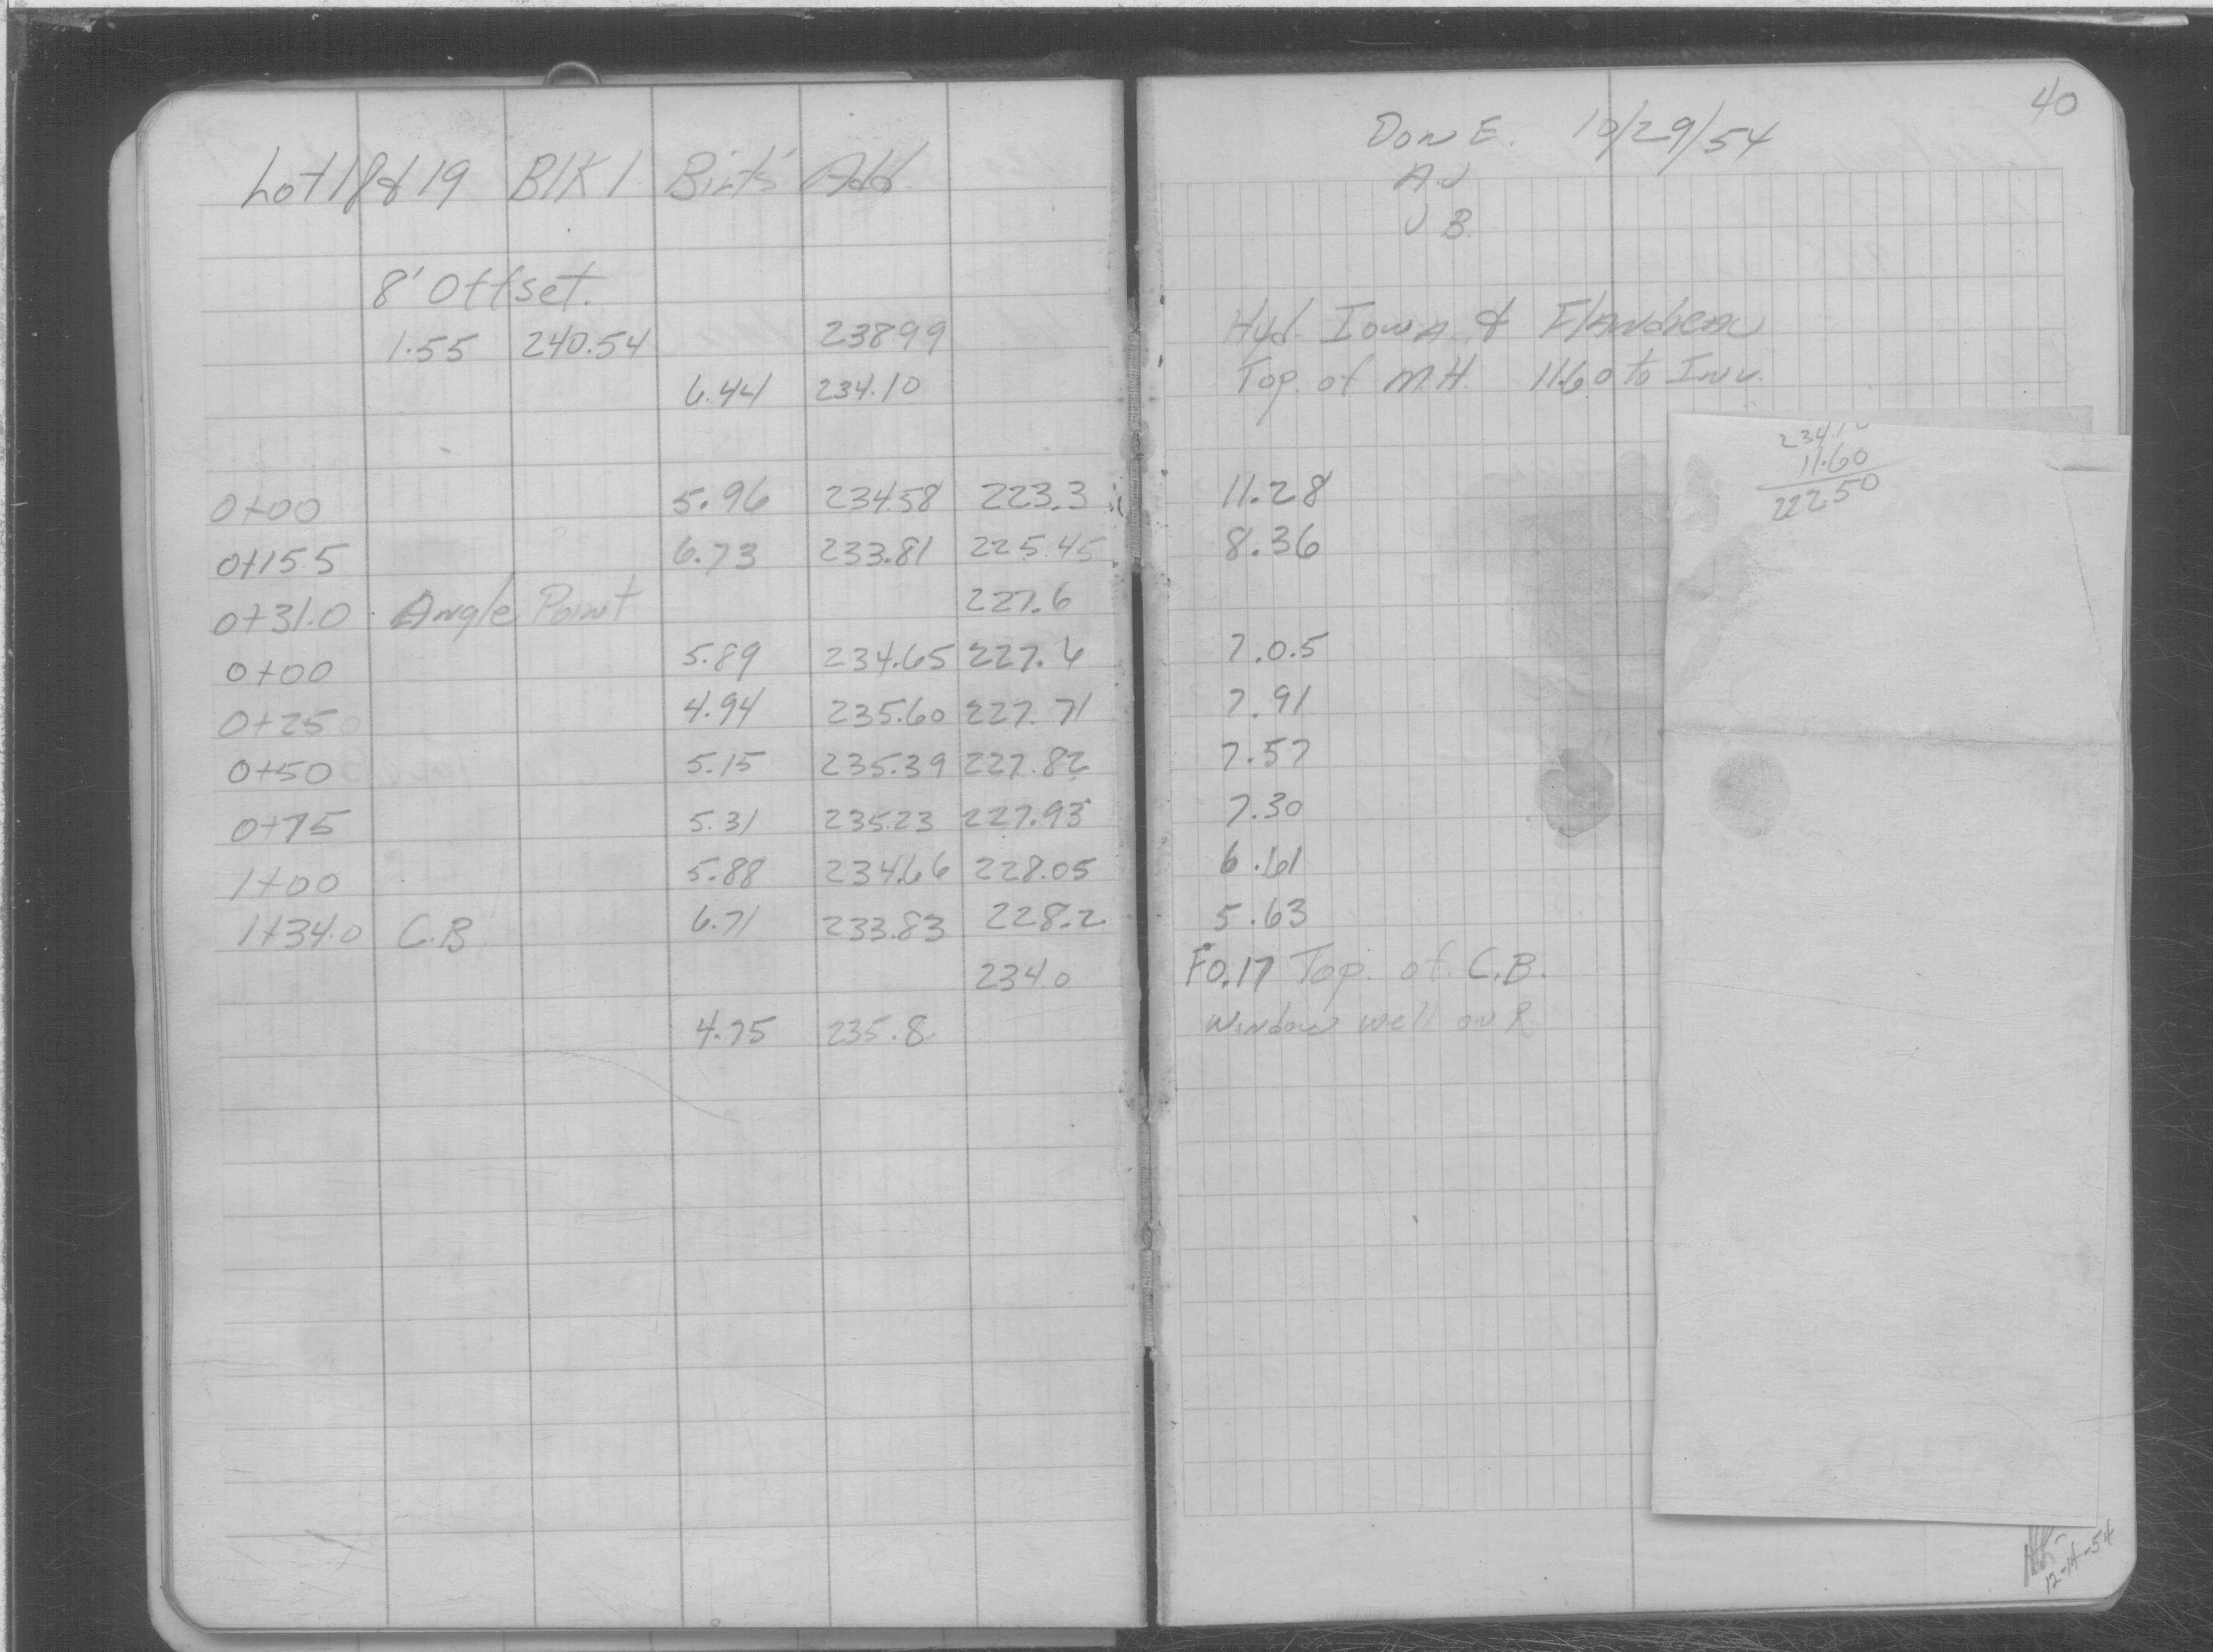 40
Don E. 10/29/54
A.J
J B.
Lot 18 & 19 Blk 1 Birt's Add.
8' Offset.
1.55 240.54 23899 Hyd. Iowa & Flandreau
6.44 234.10 Top of M H. 11.60 to Inv.
234.10
11.60
222.50
0+00 5.96 234.58 223.3 11.28
0+15.5 6.73 233.81 225.45 8.36
0+31.0 Angle Point 227.6
0+00 5.89 234.65 227.6 7.0.5
0+25 4.94 235.60 227.71 7.91
0+50 5.15 235.39 227.82 7.57
0+75 5.31 235.23 227.93 7.30
1+00 5.88 234.66 228.05 6.61
1+34.0 C.B 6.71 233.83 228.2 5.63
234.0 F0.17 Top. of C.B.
4.75 235.8 Window well on R
12-14-54